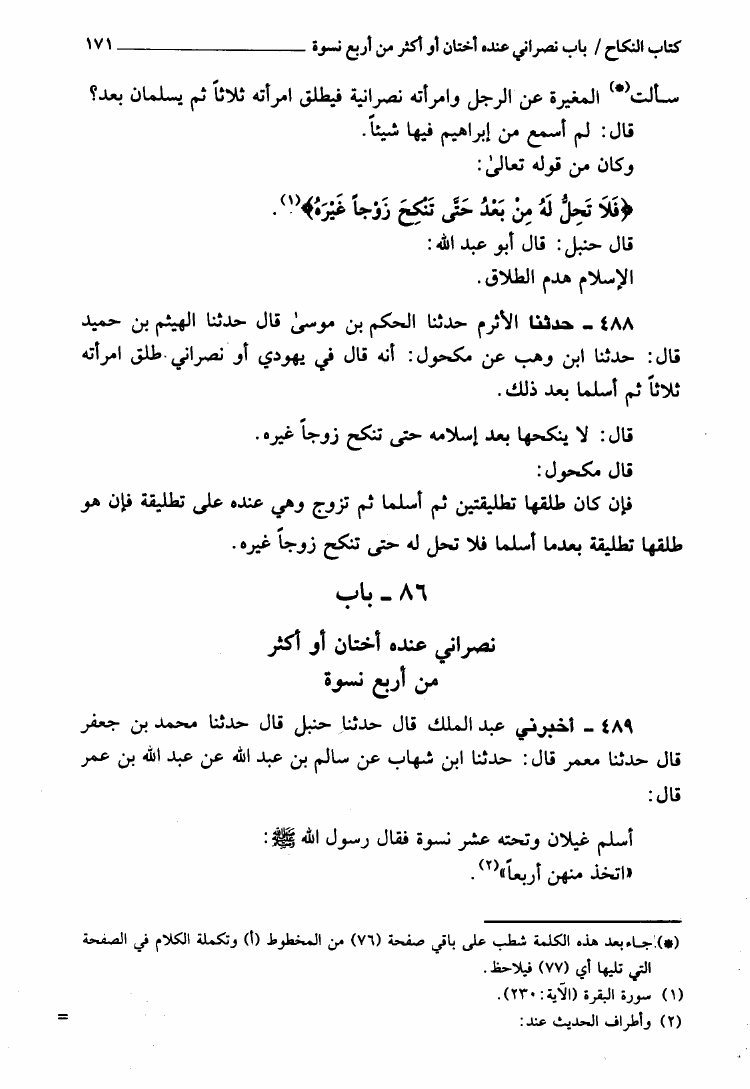 كتاب النكاح / باب نصراني عنده أختان أو أكثر من أربع نسوة ١٧١
سألت(*) المغيرة عن الرجل وامرأته نصرانية فيطلق امرأته ثلاثاً ثم يسلمان بعد؟
قال: لم أسمع من إبراهيم فيها شيئاً.
وكان من قوله تعالىٰ:
﴿فَلَا تَحِلُّ لَهُ مِنْ بَعْدُ حَتَّى تَنْكِحَ زَوْجاً غَيْرَهُ﴾(١).
قال حنبل: قال أبو عبد الله:
الإسلام هدم الطلاق.
٤٨٨ - حدثنا الأثرم حدثنا الحكم بن موسىٰ قال حدثنا الهيثم بن حميد
قال: حدثنا ابن وهب عن مكحول: أنه قال في يهودي أو نصراني طلق امرأته
ثلاثاً ثم أسلما بعد ذلك.
قال: لا ينكحها بعد إسلامه حتى تنكح زوجاً غيره.
قال مكحول:
فإن كان طلقها تطليقتين ثم أسلما ثم تزوج وهي عنده على تطليقة فإن هو
طلقها تطليقة بعدما أسلما فلا تحل له حتى تنكح زوجاً غيره.
٨٦ - باب
نصراني عنده أختان أو أكثر
من أربع نسوة
٤٨٩ - أخبرني عبد الملك قال حدثنا حنبل قال حدثنا محمد بن جعفر
قال حدثنا معمر قال: حدثنا ابن شهاب عن سالم بن عبد الله عن عبد الله بن عمر
قال:
أسلم غيلان وتحته عشر نسوة فقال رسول الله ﷺ:
«اتخذ منهن أربعاً»(٢).
(*) جاء بعد هذه الكلمة شطب على باقي صفحة (٧٦) من المخطوط (أ) وتكملة الكلام في الصفحة
التي تليها أي (٧٧) فيلاحظ.
(١) سورة البقرة (الآية: ٢٣٠).
(٢) وأطراف الحديث عند: =